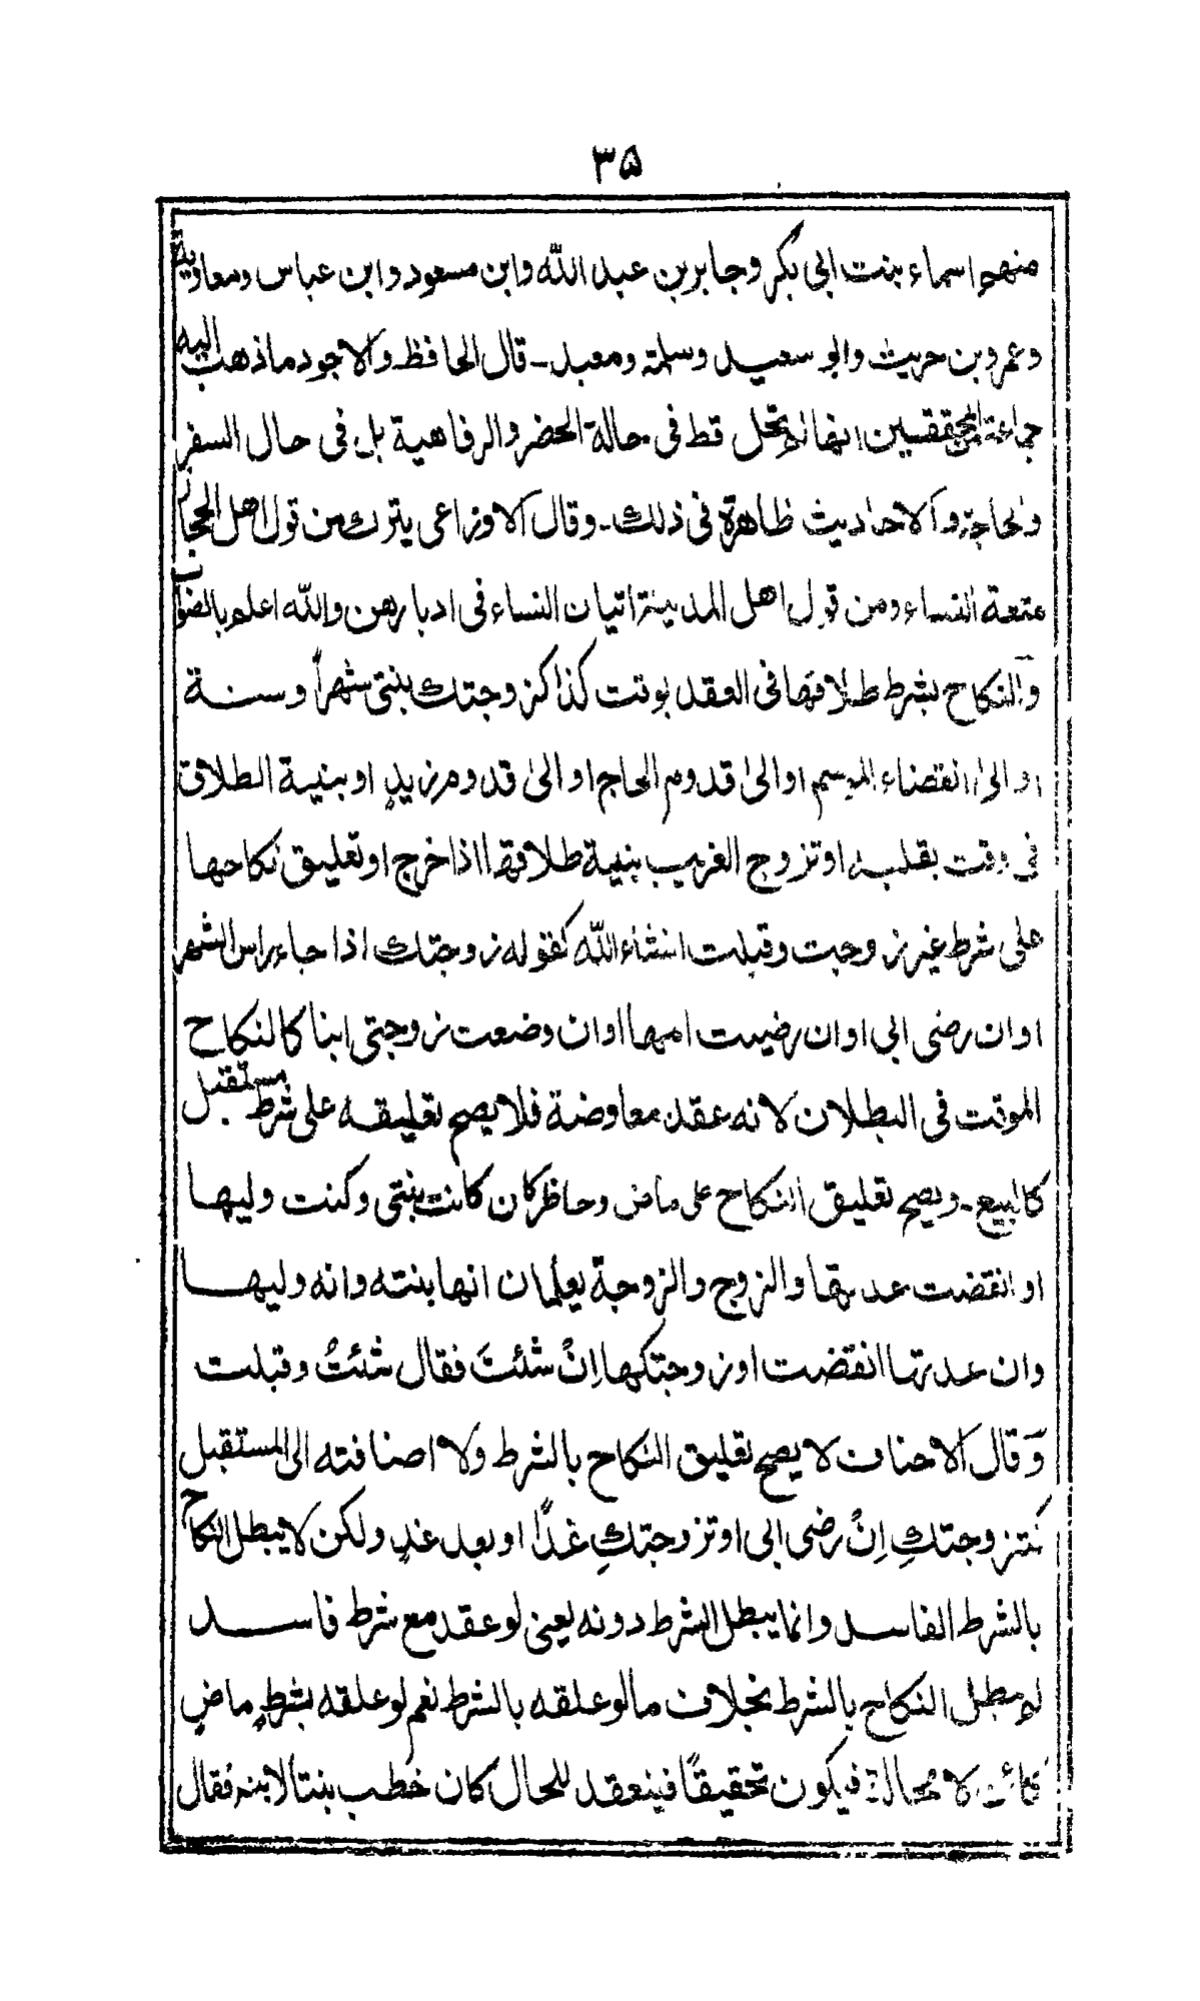 ۳۵
منهم اسماء بنت ابی بکر وجابر بن عبد الله وابن مسعود وابن عباس ومعاوية
وعمرو بن حريث وابو سعيد وسلمة ومعبد ـ قال الحافظ والاجود ما ذهب اليه
جماعة المحققين انها لا تحل قط فی حالة الحضر والرفاهية بل فی حال السفر
والحاجة والاحاديث ظاهرة فی ذلك ـ وقال الاوزاعی يترك من قول اهل الحجاز
متعة النساء ومن قول اهل المدينة اتيان النساء فی ادبارهن والله اعلم بالصواب
والنكاح بشرط طلاقها فی العقد بوقت كذا كزوجتك بنتی شهراً وسنة
او الیٰ انقضاء الموسم او الیٰ قدوم الحاج او الیٰ قدوم زيدٍ او بنية الطلاق
فی وقت بقلبه او تزوج الغريب بنية طلاقها اذا خرج او تعليق نكاحها
علی شرط غير زوجت وقبلت انشاء الله كقوله زوجتك اذا جاء راس الشهر
او ان رضی ابی او ان رضيت امها او ان وضعت زوجتی ابنا كالنكاح
الموقت فی البطلان لانه عقد معاوضة فلا يصح تعليقه علی شرط مستقبل
كالبيع ـ ويصح تعليق النكاح علی ماض وحاظر كان كانت بنتی وكنت وليها
او انقضت عدتها والزوج والزوجة يعلمان انها بنته وانه وليها
وان عدتها انقضت او زوجتكها اِنْ شئتَ فقال شئتُ وقبلت
وَقال الاحناف لا يصح تعليق النكاح بالشرط ولا اضافته الی المستقبل
كتزوجتكِ اِنْ رضی ابی او تزوجتكِ غداً او بعد غدٍ ولكن لا يبطل النكاح
بالشرط الفاسد وانما يبطل الشرط دونه يعنی لو عقد مع شرط فاسد
لم يبطل النكاح بالشرط بخلاف ما لو علقه بالشرط نعم لو علقه بشرطٍ ماضٍ
كائن لا محالة فيكون تحقيقاً فينعقد للحال كان خطب بنتاً لابنه فقال